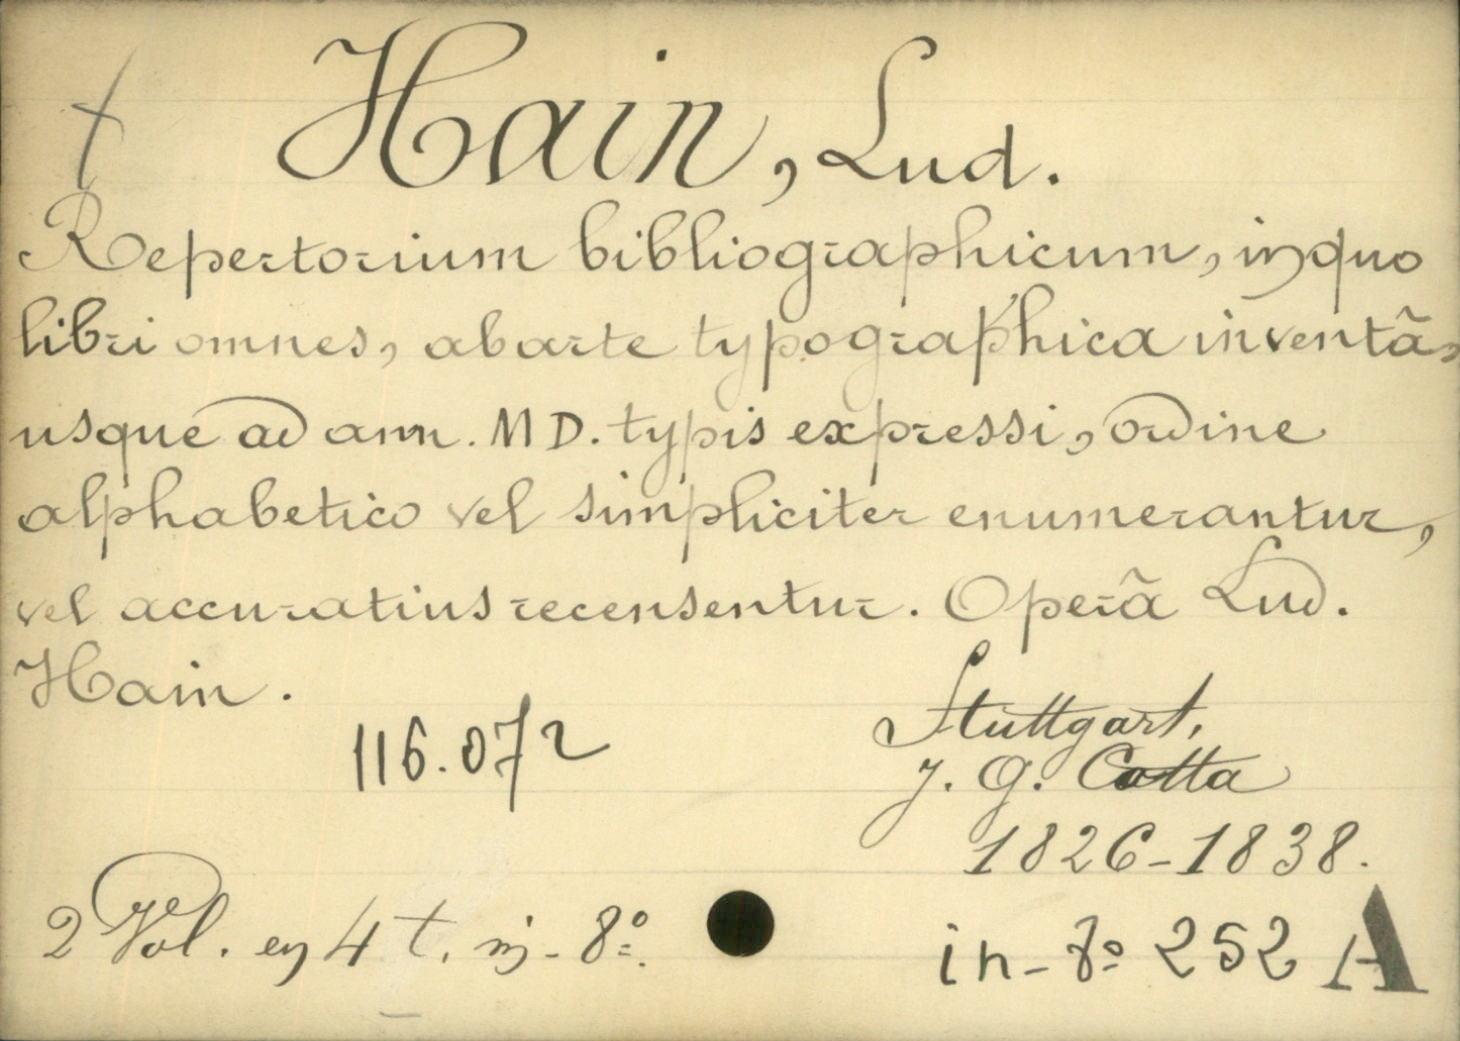 Hain, Lud.
Repertorium bibliographicum, in quo
libri omnes, ab arte typographica inventã,
usque ad ann. MD. typis expressi, ordine
alphabetico vel simpliciter enumerantur,
vel accuratius recensentur. Operã Lud.
Hain.
116.072
Stuttgart,
J. G. Cotta
1826-1838.
2 Vol. en 4 t. in-8º.
in-8º 252 A